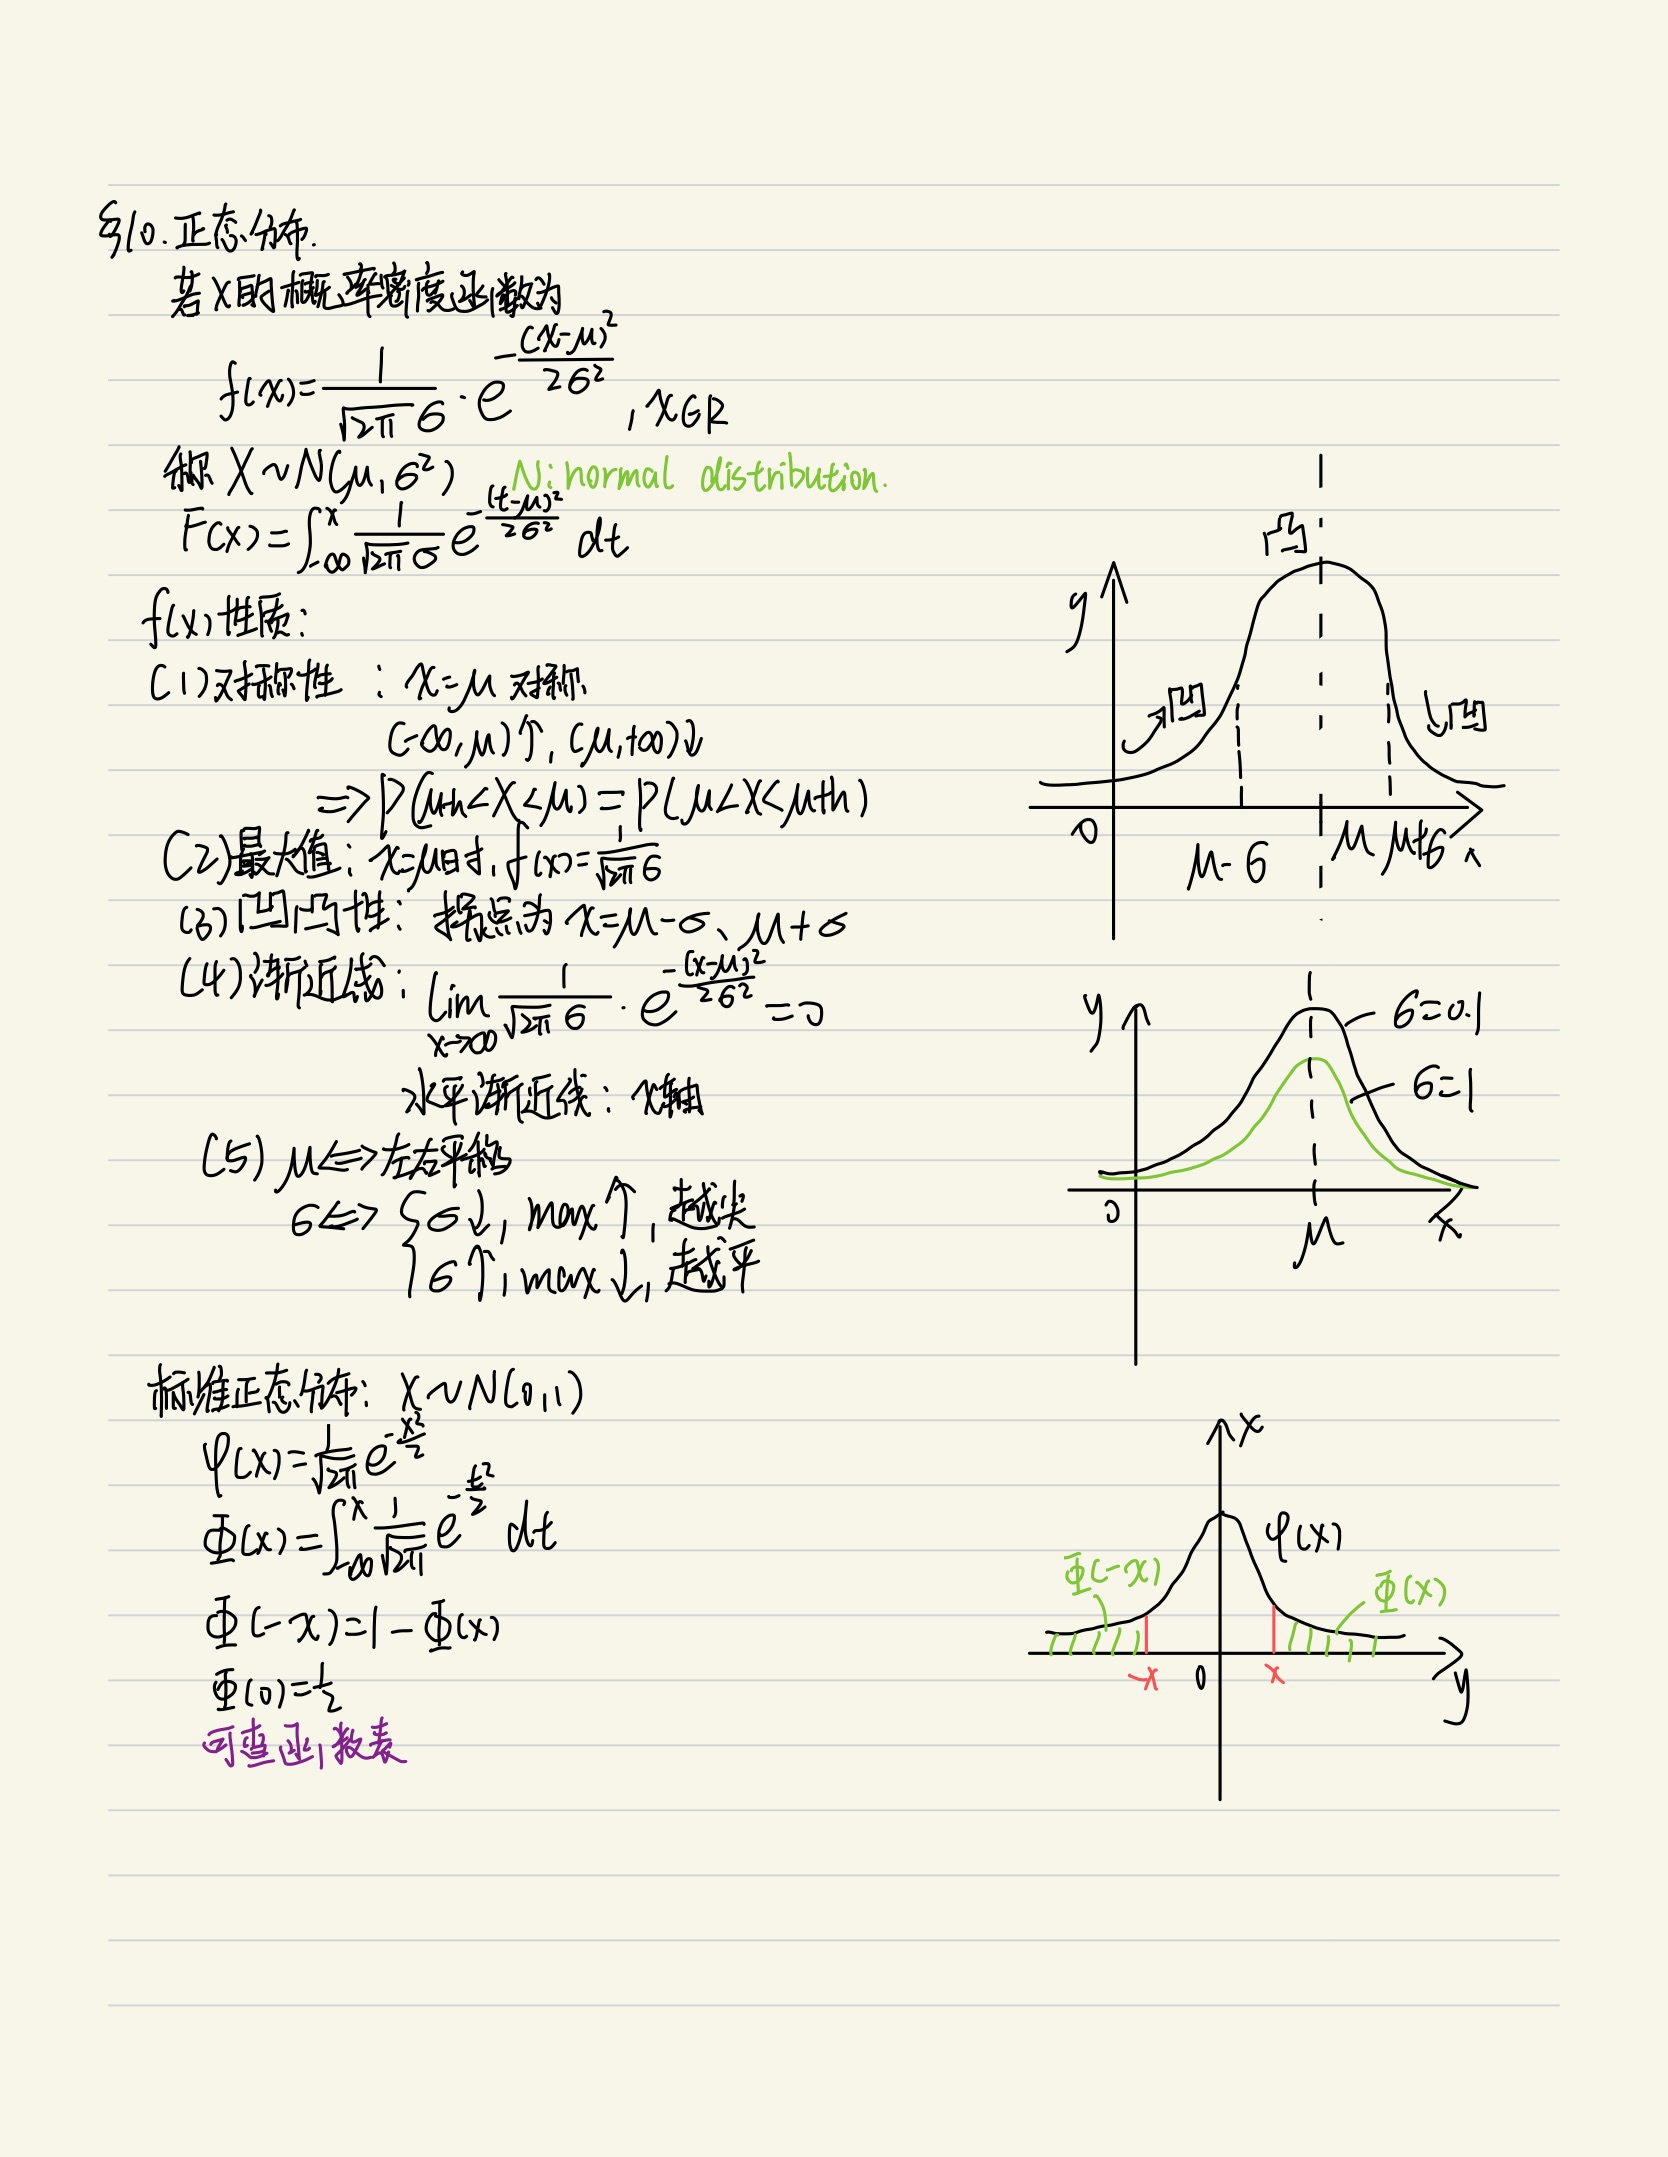 §10. 正态分布.
若X的概率密度函数为
f(x)=\frac{1}{\sqrt{2π}σ}·e^{-\frac{(x-μ)^2}{2σ^2}}, x∈R
称 X~N(μ,σ²) N: normal distribution.
F(x)=∫_{-∞}^{x}\frac{1}{\sqrt{2π}σ}e^{-\frac{(t-μ)^2}{2σ^2}}dt
f(x)性质:
(1)对称性: x=μ 对称
(-∞,μ)↑, (μ,+∞)↓
=>P(μ-h<X<μ)=P(μ<X<μ+h)
(2)最大值: x=μ时, f(x)=\frac{1}{\sqrt{2π}σ}
(3)凹凸性: 拐点为 x=μ-σ、μ+σ
(4)渐近线: \lim_{x→∞}\frac{1}{\sqrt{2π}σ}·e^{-\frac{(x-μ)^2}{2σ^2}}=0
水平渐近线: x轴
(5) μ<=>左右平移
σ<=>{σ↓, max↑, 越尖
σ↑, max↓, 越平
标准正态分布: X~N(0,1)
φ(x)=\frac{1}{\sqrt{2π}}e^{-\frac{x^2}{2}}
Φ(x)=∫_{-∞}^{x}\frac{1}{\sqrt{2π}}e^{-\frac{t^2}{2}}dt
Φ(-x)=1-Φ(x)
Φ(0)=\frac{1}{2}
可查函数表
凸
y
凹
凹
0
μ-σ
μ
μ+σ
x
y
σ=0.1
σ=1
0
μ
x
x
φ(x)
Φ(-x)
Φ(x)
-x
0
x
y